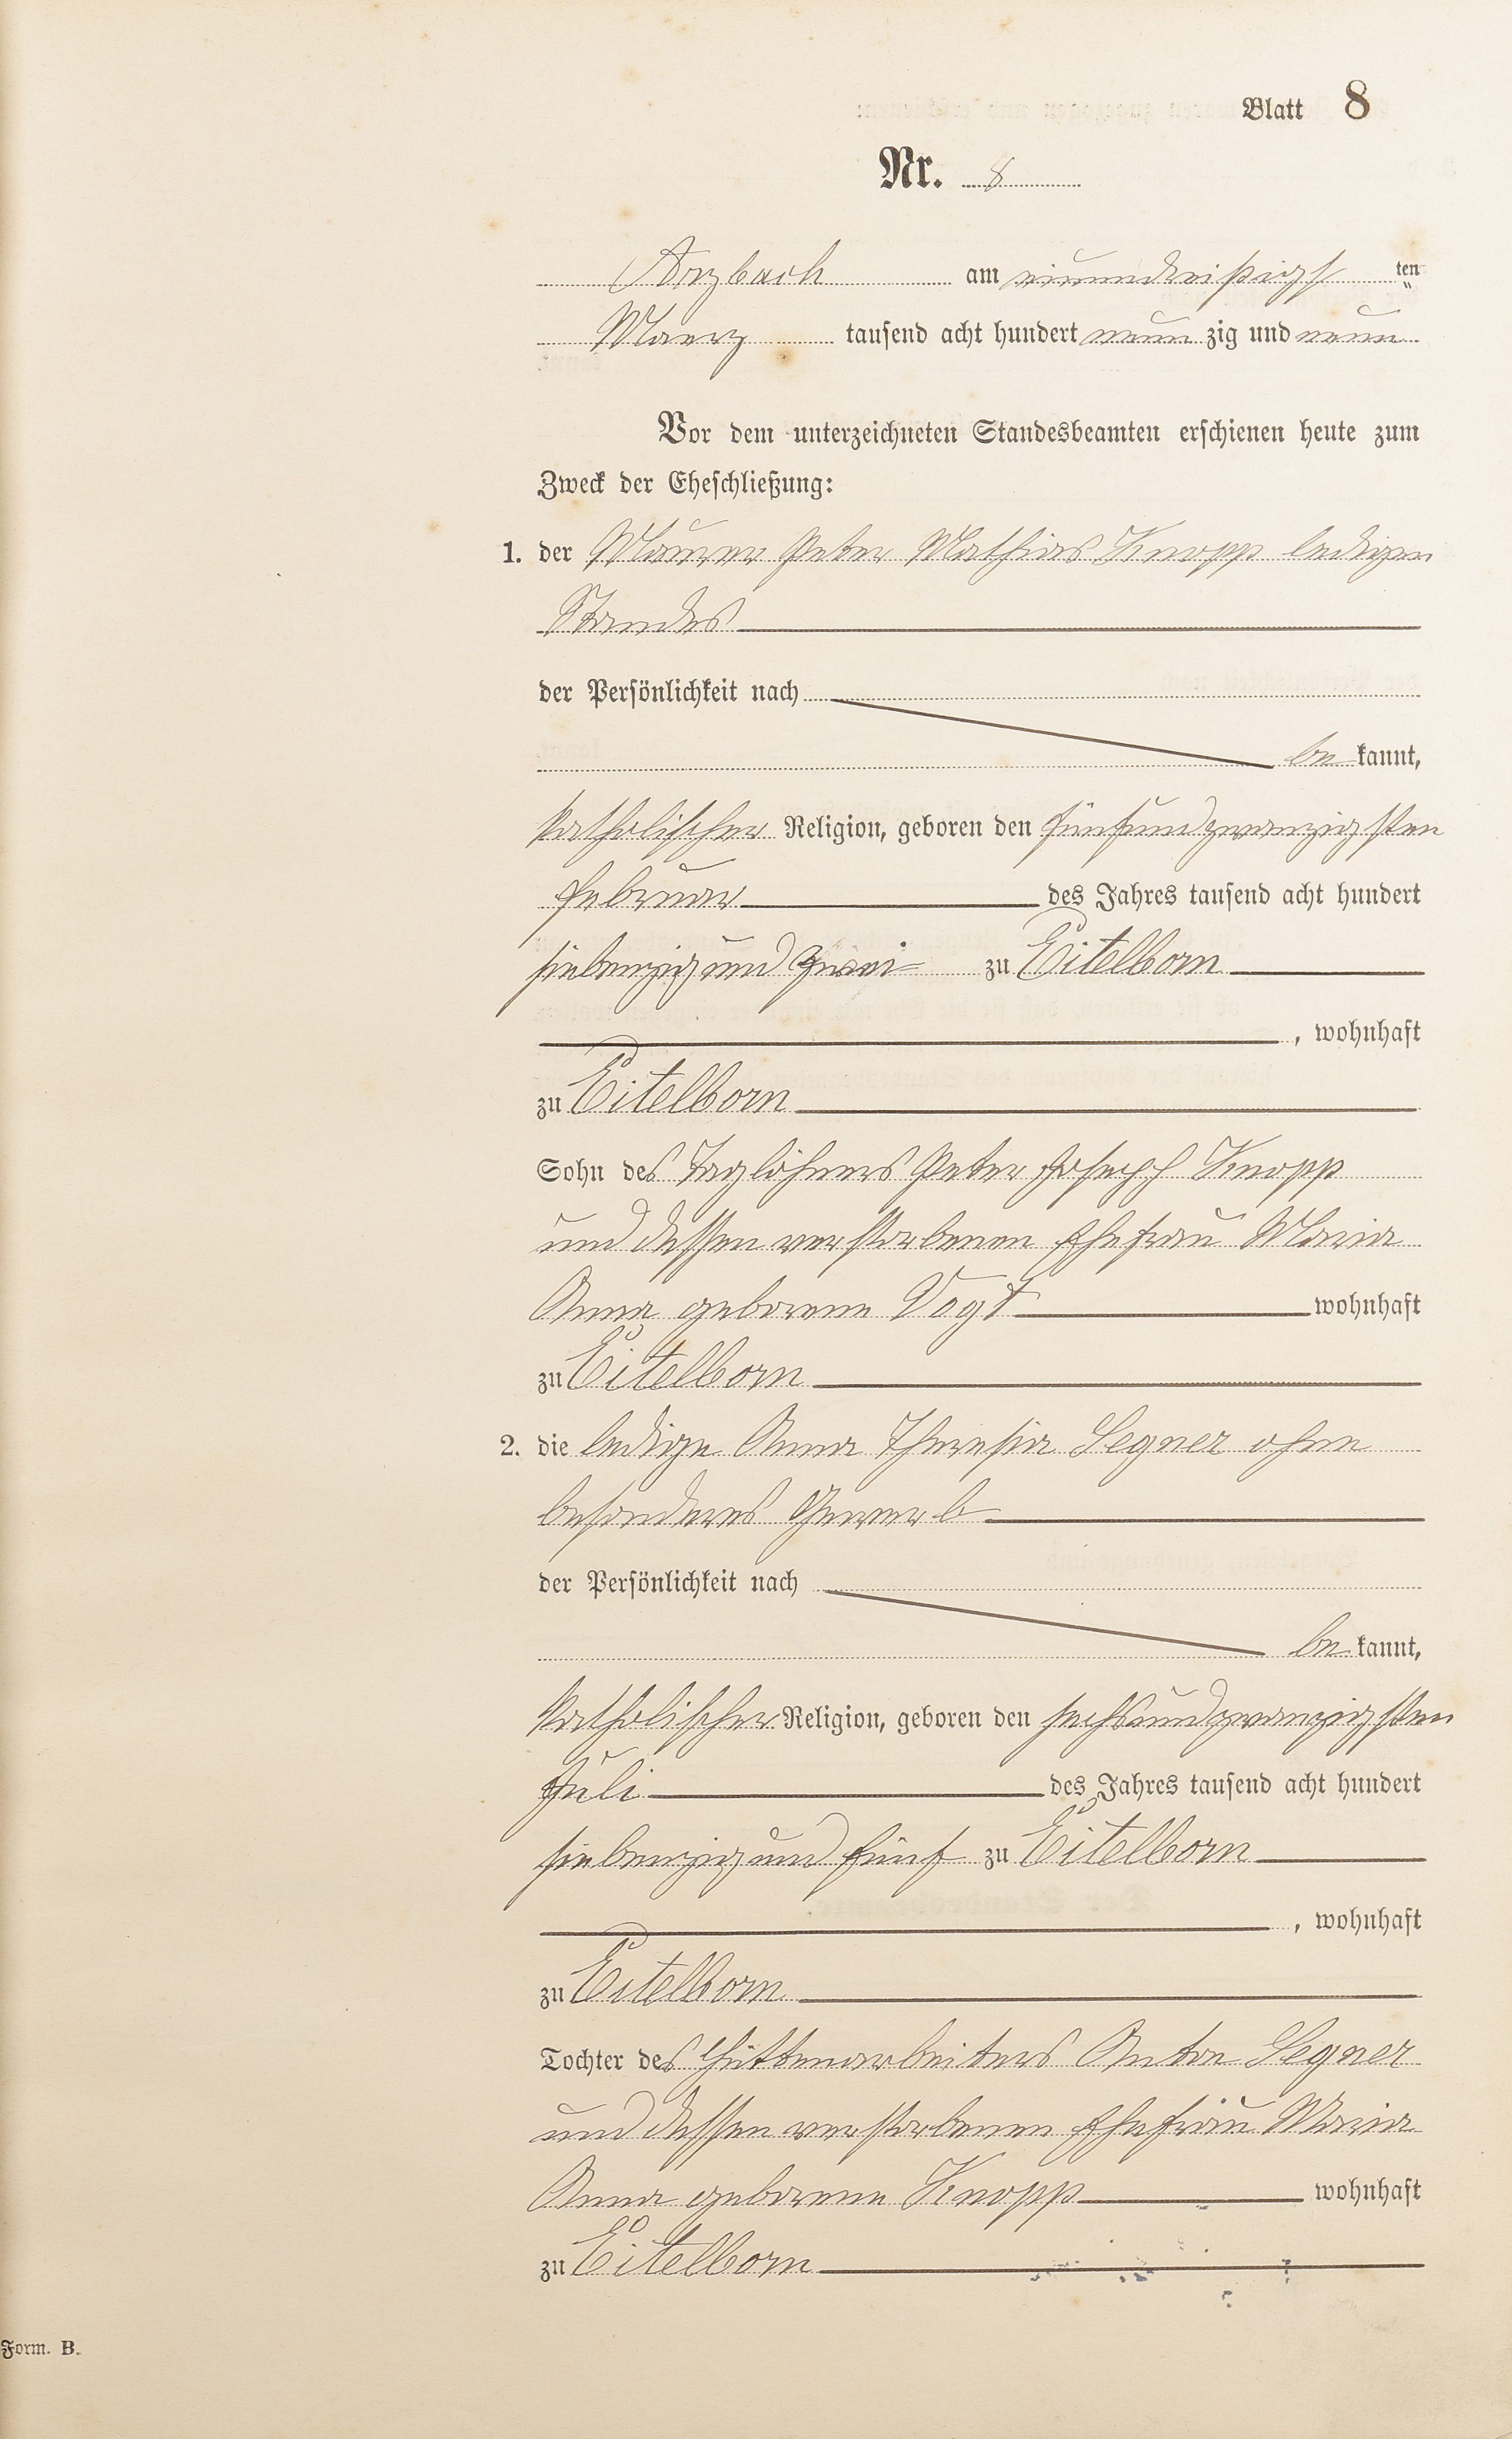 Blatt 8
Nr. 8
Arzbach am einunddreißigs ten
Maerz tausend acht hundert neun zig und neun
Vor dem unterzeichneten Standesbeamten erschienen heute zum
Zweck der Eheschließung:
1. der Maurer Peter Mathias Knopp ledigen
Standes
der Persönlichkeit nach
be kannt,
katholischer Religion, geboren den fünfundzwanzigsten
Februar des Jahres tausend acht hundert
siebenzig und zwei zu Eitelborn
, wohnhaft
zu Eitelborn
Sohn des Taglöhners Peter Joseph Knopp
und dessen verstorbenen Ehefrau Maria
Anna geborene Vogt wohnhaft
zu Eitelborn
2. die ledige Anna Theresia Segner ohne
besonderes Gewerb
der Persönlichkeit nach
be kannt,
katholischer Religion, geboren den sechsundzwanzigsten
Juli des Jahres tausend acht hundert
siebenzig und fünf zu Eitelborn
, wohnhaft
zu Eitelborn
Tochter des Hüttenarbeiters Anton Segner
und dessen verstorbenen Ehefrau Maria
Anna geborene Knopp wohnhaft
zu Eitelborn
Form. B.